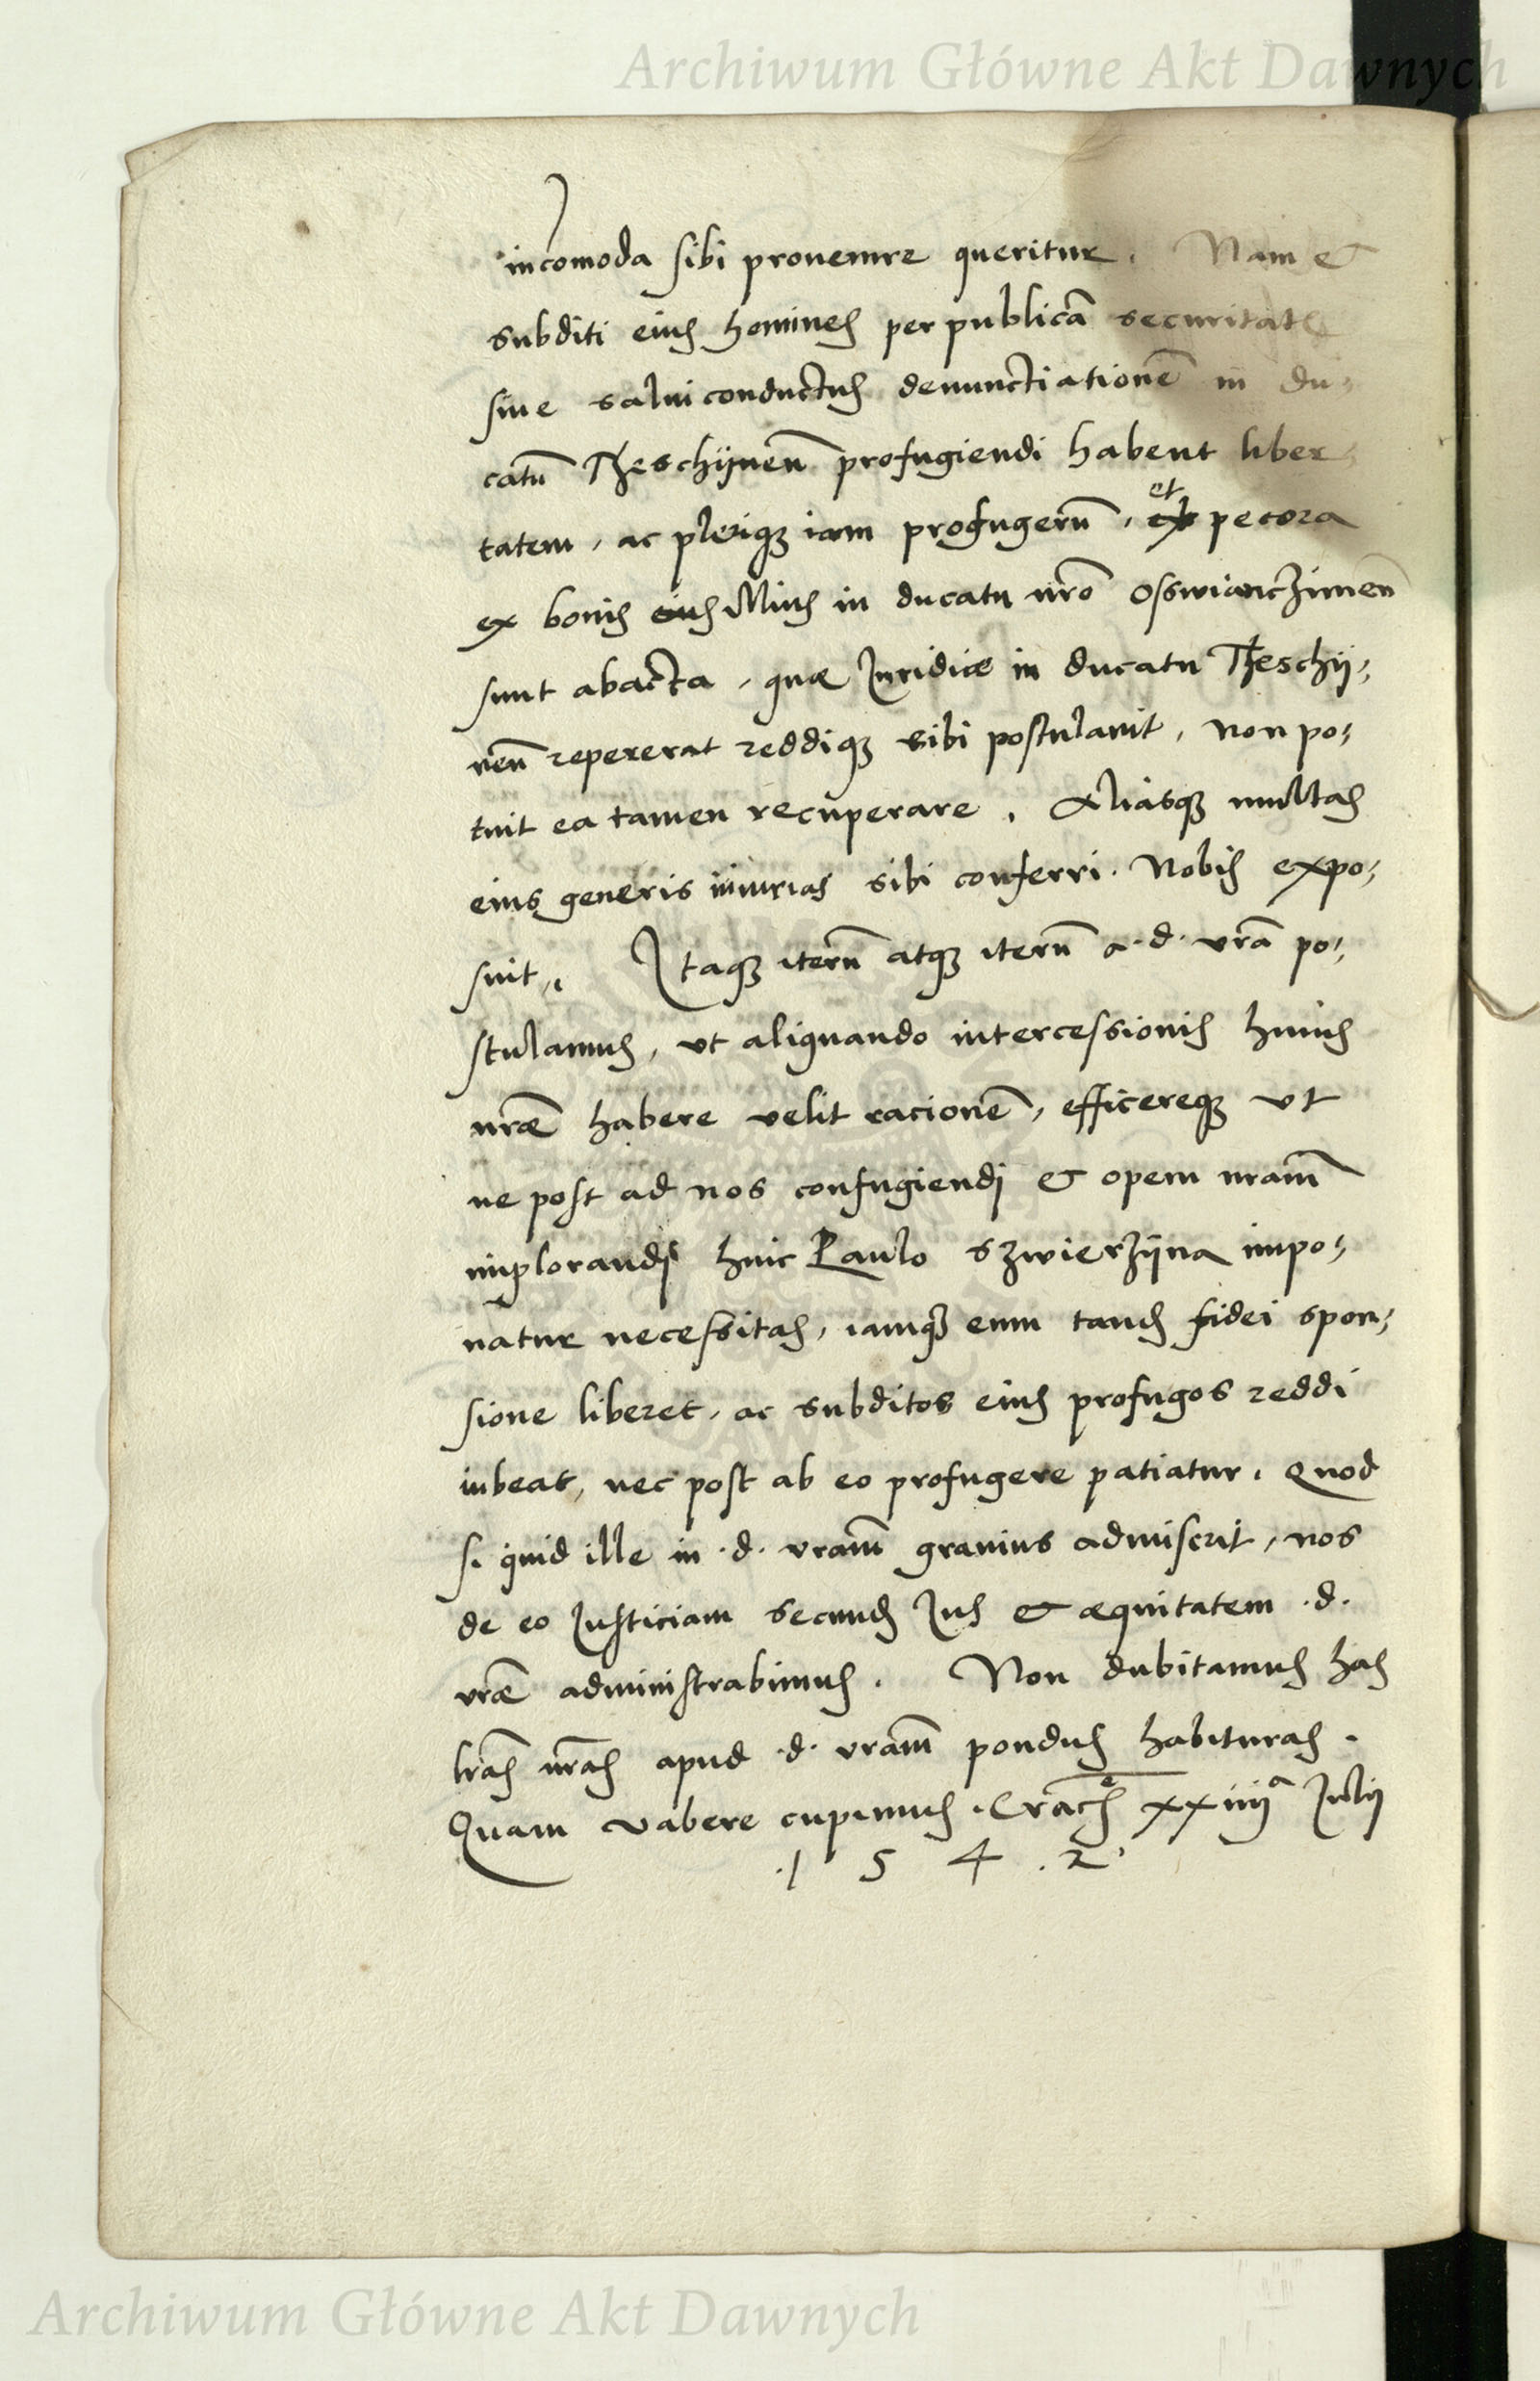 Archiwum Główne Akt Dawnych
incomoda sibi provenire queritur. Nam &
subditi eius homines per publicā securitatē
sive salviconductus denunctiationē in du-
catū Theschÿnen̄ profugiendi habent liber-
tatem, ac pleriqȝ iam profugerū, et pecora
ex bonis illius in ducatu nr̄o Osswianczimen̄
sunt abacta, quæ Juridicæ in ducatu Theschÿ-
nen̄ repererat reddiqȝ sibi postulavit, non po-
tuit ea tamen recuperare. Aliasqȝ multas
eius generis iniurias sibi conferri. Nobis expo-
suit. Itaqȝ iterū atqȝ iterū a .d. vr̄a po-
stulamus, ut aliquando intercessionis huius
nr̄æ habere velit racionē, efficereqȝ ut
ne post ad nos confugiendj & opem nr̄am
implorandj huic Paulo Szwierzÿna impo-
natur necessitas, iamqȝ eum tandē fidei spon-
sione liberet, ac subditos eius profugos reddi
iubeat, nec post ab eo profugere patiatur. Quod
si quid ille in .d. vr̄am gravius admiserit, nos
de eo Justiciam secundū Jus & æquitatem .d.
vr̄æ administrabimus. Non dubitamus has
lr̄as nr̄as apud .d. vr̄am pondus habituras.
Quam valere cupimus. Cracie xxiiij a Julij
.1 5 4 .2.
Archiwum Główne Akt Dawnych